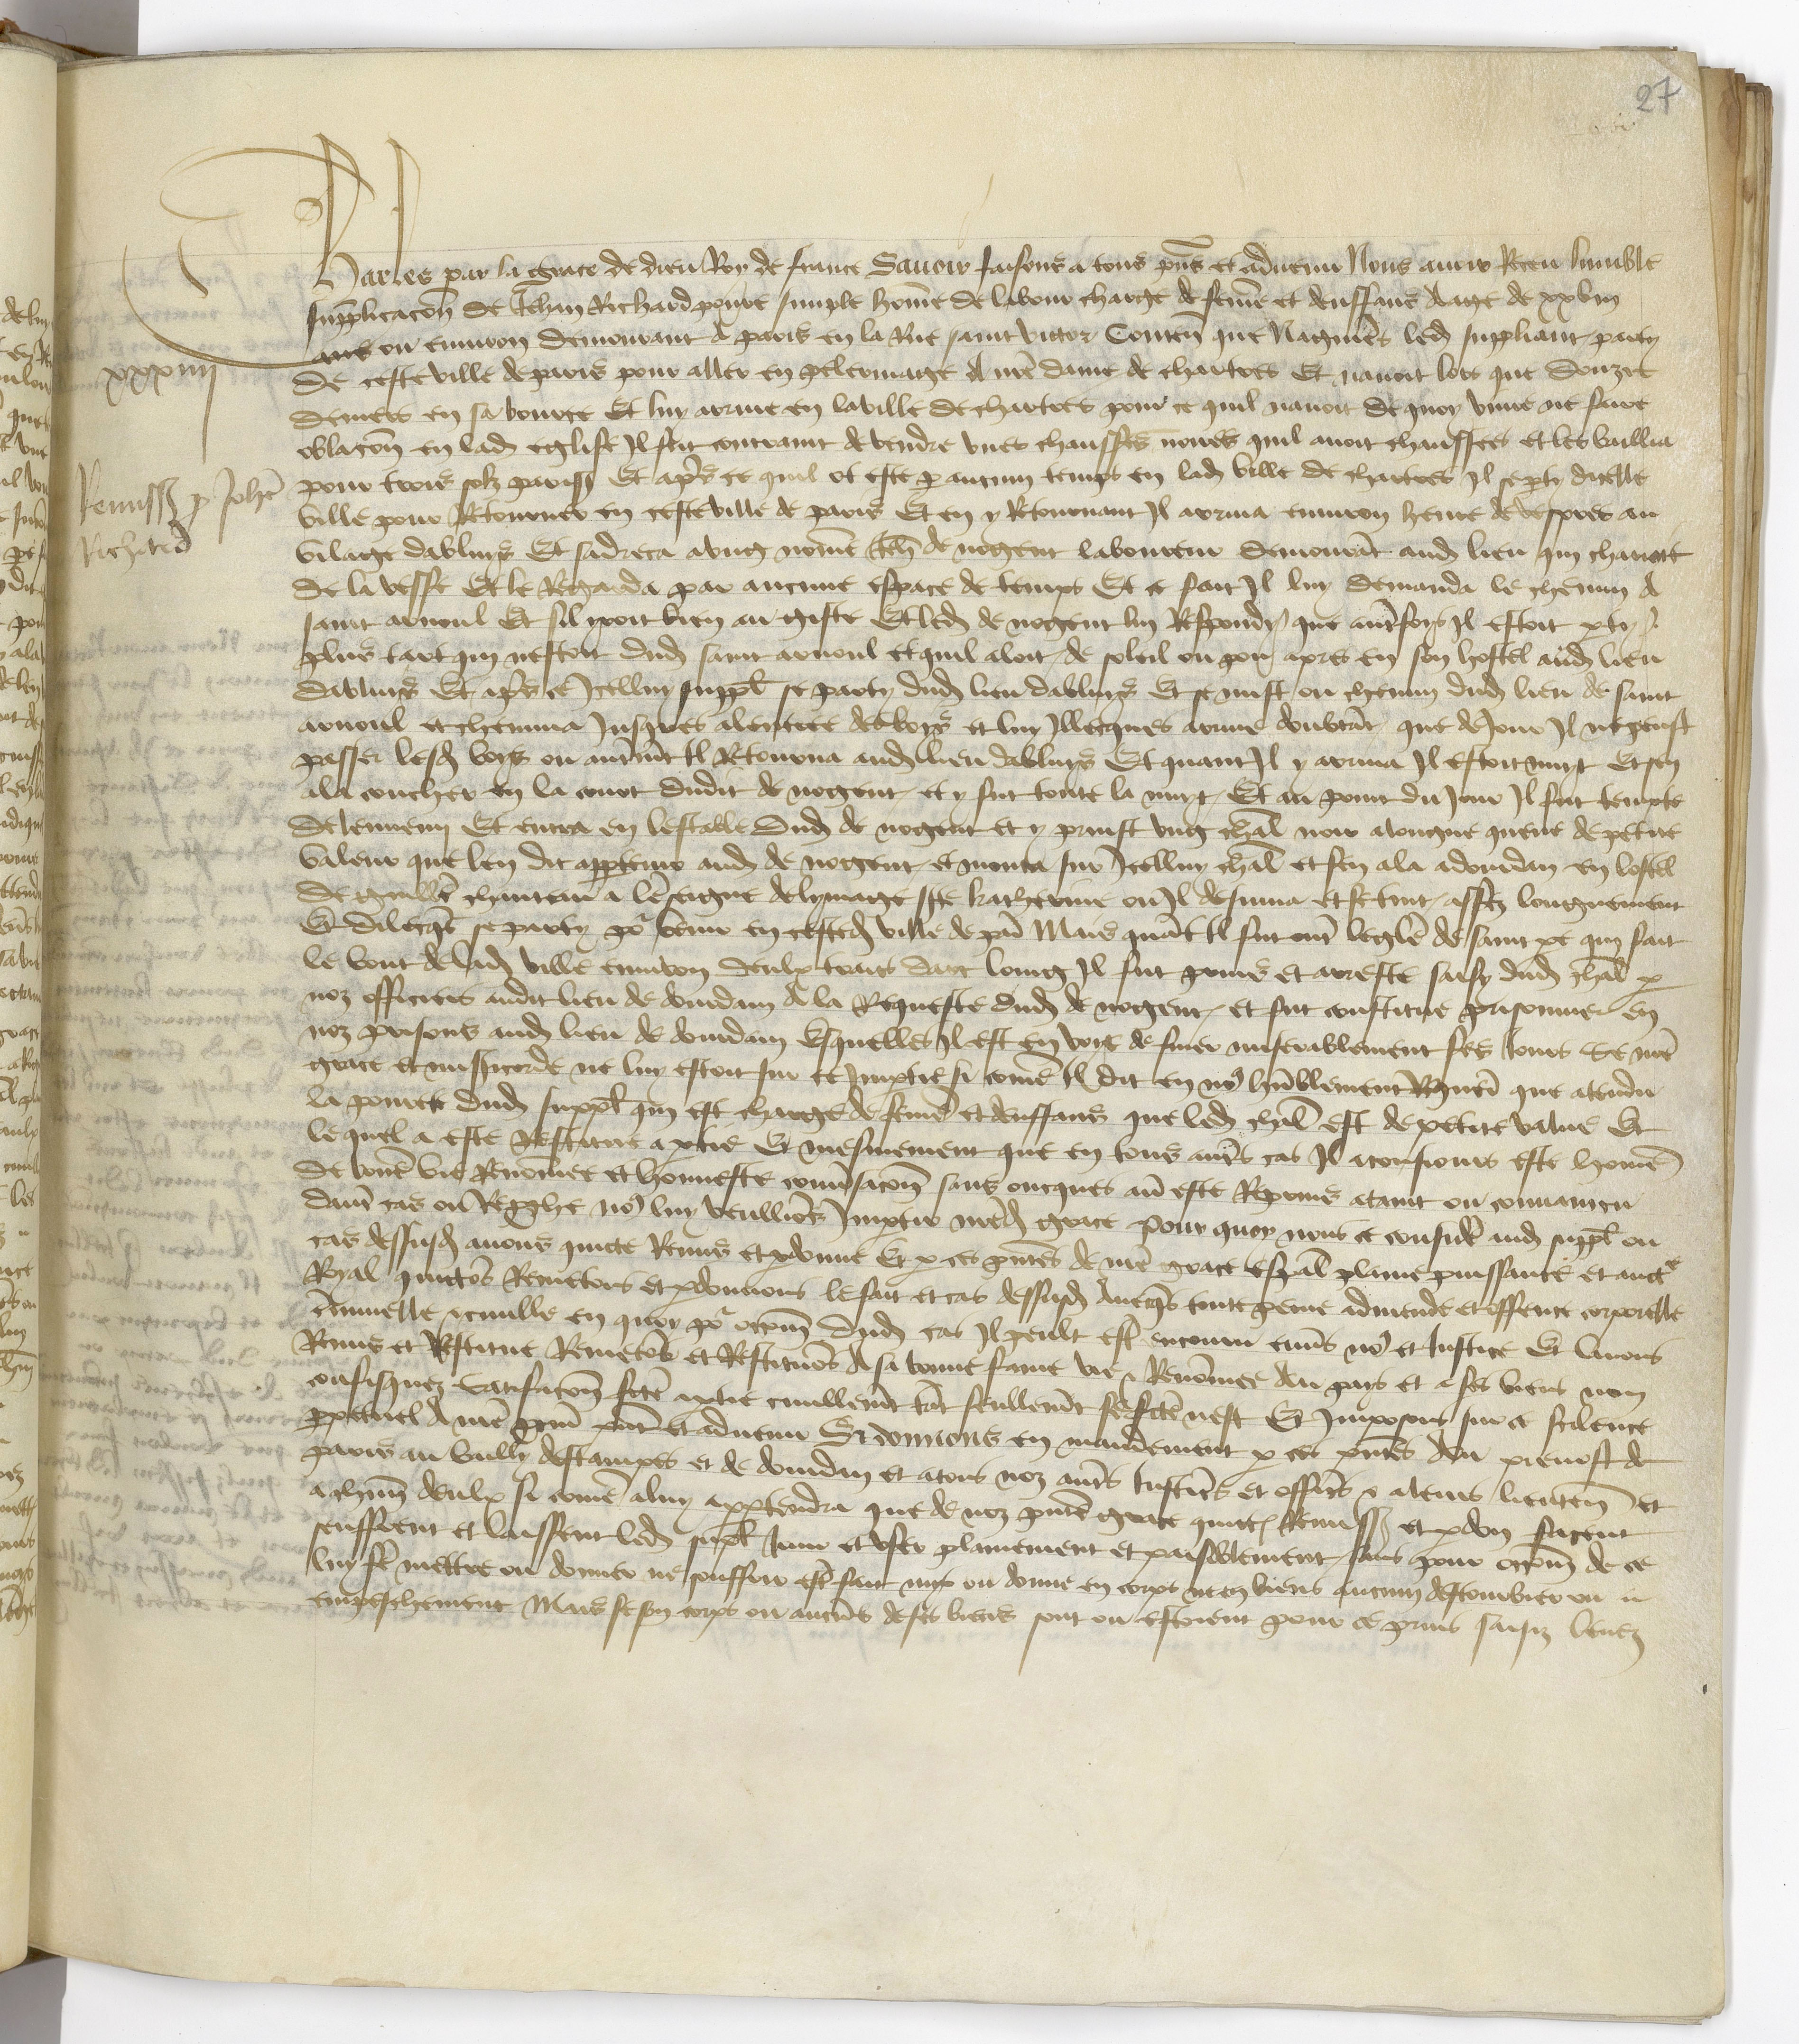 27
Charles par la grace de dieu Roy de france Savoir faisons a tous pns et advenir Nous avoir Receu lumble
supplicacon de Jehan Richard povre simple homme de labour charge de femme et denffans aage de xxviii
ans ou environ demourant a paris en la Rue saint victor Conten que Nagueres led suppliant party
xxxiiii
de ceste ville de paris pour aller en pelermaige A nre dame de chartres Et navoit lors que douze
deniers en sa bource Et luy arrive en laville de chartres pour ce quil navoit de quoy vivre ne faire
oblacon en lad eglise Il fut contraint de vendre unes chausses noires quil avoit chaussees et les bailla
Remiss p Johe
Richard
pour trois solz paris Et apres ce quil ot este p aucun temps en lad ville de chartres Il se party dicelle
ville pour Retourner en ceste ville de paris Et en y Retournant Il arriva environ heure de vespres au
vilage dabluys Et sadreca a ung nomme Jeh de nogent laboureur demourat aud lieu qui charioit
de la vesse Et le Regarda par aucune espace de temps Et ce fait Il luy demanda le chemin A
saint arnoul Et sil yroit bien au giste Et led de nogent luy Respondy que autresfoys Il estoit party
plus tart qui nestoit dud saint arnoul et quil aloit de soleil ou pou apres en son hostel aud lieu
dabluys Et apres ce Icelluy suppl se party dud lieu dabluys Et se mist ou chemin dud lieu de saint
arnoul et chemina Jusques alentree des boys et luy Illecques arrive doubtat que de Jour Il ne peust
passer lesd boys ou autremt Il Retourna aud lieu dabluys Et quant Il y arriva Il estoit nuyt Et sen
ala coucher en la court dudit de nogent et y fut toute la nuyt Et au point du Jour Il fut tempte
de lennemy Et entra en lestable dud de nogent et y prinst ung chal noir a longue queue de petite
valeur que len dit appartenir aud de nogent et monta sur Icelluy chal et sen ala a dourdan en lostel
de guille chanteau a lenseigne de lymage ste katherine ou Il desiuna et se tint assez longuement
Et dilecqs se party pr venir en ceste d ville de paris Mais quat Il fut outre leglise de saint pe qui fait
le bout de lad ville environ deulx traiz darc loing Il fut prins et arreste saisy dud chal p
noz officiers audit lieu de dourdan A la Requeste dud de nogent et fut constitue prisonnier en
noz prisons aud lieu de dourdan Esquelles Il est en voye de finer miserablement ses Jours Se nre
grace et misericorde ne luy estoit sur ce Impartie si comme Il dit en nos humblement Requerat que atendu
la povrete dud suppl qui est charge de femme et denffans que led chal est de petite value Et
lequel a este Restitue a partie Et mesmement que en tous autres cas Il a tousiours este homme
de bonne vie Renommee et honneste conversacon sans oncques avoir este Reprins ataint ou convaincu
daucun cas ou Reprouche nos luy veullions Impartir nre d grace Pour quoy nous ce consideré aud suppl ou
cas dessusd avons quicte Remis et pdonne Et p ces pntes de nre grace espal plaine puissance et aucte
Royal quictons Remetons et pdonnons le fait et cas dessusd Aueqs toute peine admende et offence corporelle
criminelle et civille en quoy pr occon dud cas Il peult estre encouru envers nos et Justice Et lavons
Remis et Restitue Remetons et Restituons A sa bonne fame vie et Renommee Au pays et a ses biens non
confisquez satisfacon fcte a partie civillemt tat seullemt se fcte nest Et Imposons sur ce scilence
perpetuel A nre procur present et advenir Si donnons en mandement p ces pntes Au prevost de
paris au bailly destampes et de dourdan et a tous noz autres Justiciers et officiers ou a leurs lieuxten et
a chun deulx si comme a luy appartendra que de noz pnte grace quictce Remiss et pdon facent
seuffrent et laissent led suppl Jouir et user plainement et paisiblement sans pour occon de ce
luy fe mettre ou donner ne souffrir estre fait mis ou donne en corps ne en biens aucun destourbier ou
empeschement Mais se son corps ou aucuns de ses biens sont ou estoient pour ce prins saisiz levez